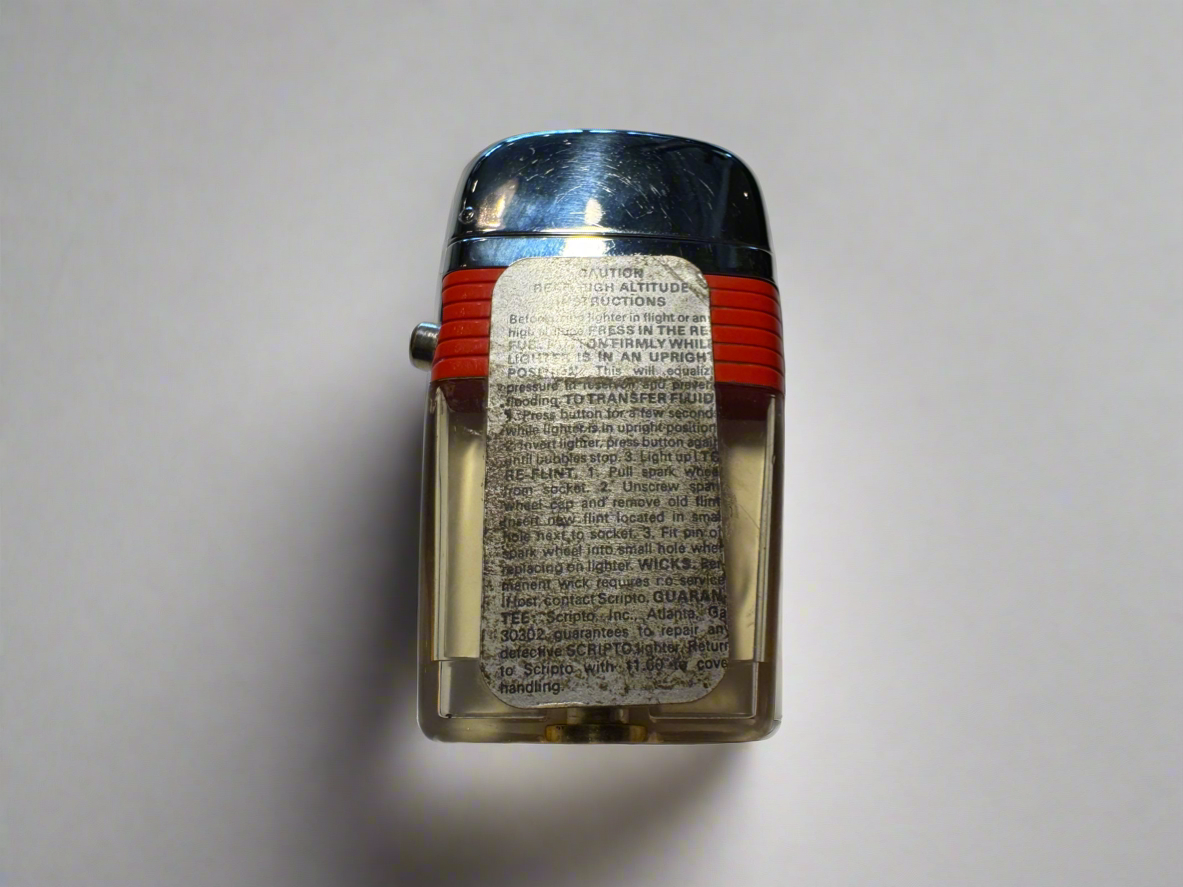 CAUTION
HIGH ALTITUDE
INSTRUCTIONS
lighter in flight or an
PRESS IN THE RE-
FIRMLY WHIL
LIGHTER IS IN AN UPRIGHT
This will equaliz
pressure in reservoir and preven
flooding. TO TRANSFER FLUID
1. Press button for a few second
while lighter is in upright position
2. Invert lighter, press button again
until bubbles stop. 3. Light up! TO
RE-FLINT. 1. Pull spark whee
from socket. 2. Unscrew spar
wheel cap and remove old flint
insert new flint located in smal
hole next to socket. 3. Fit pin of
spark wheel into small hole whe
replacing on lighter. WICKS. Per-
manent wick requires no service
If lost, contact Scripto. GUARAN-
TEE: Scripto, Inc., Atlanta, Ga
30302, guarantees to repair any
defective SCRIPTO lighter. Return
to Scripto with $1.00 to cove
handling.